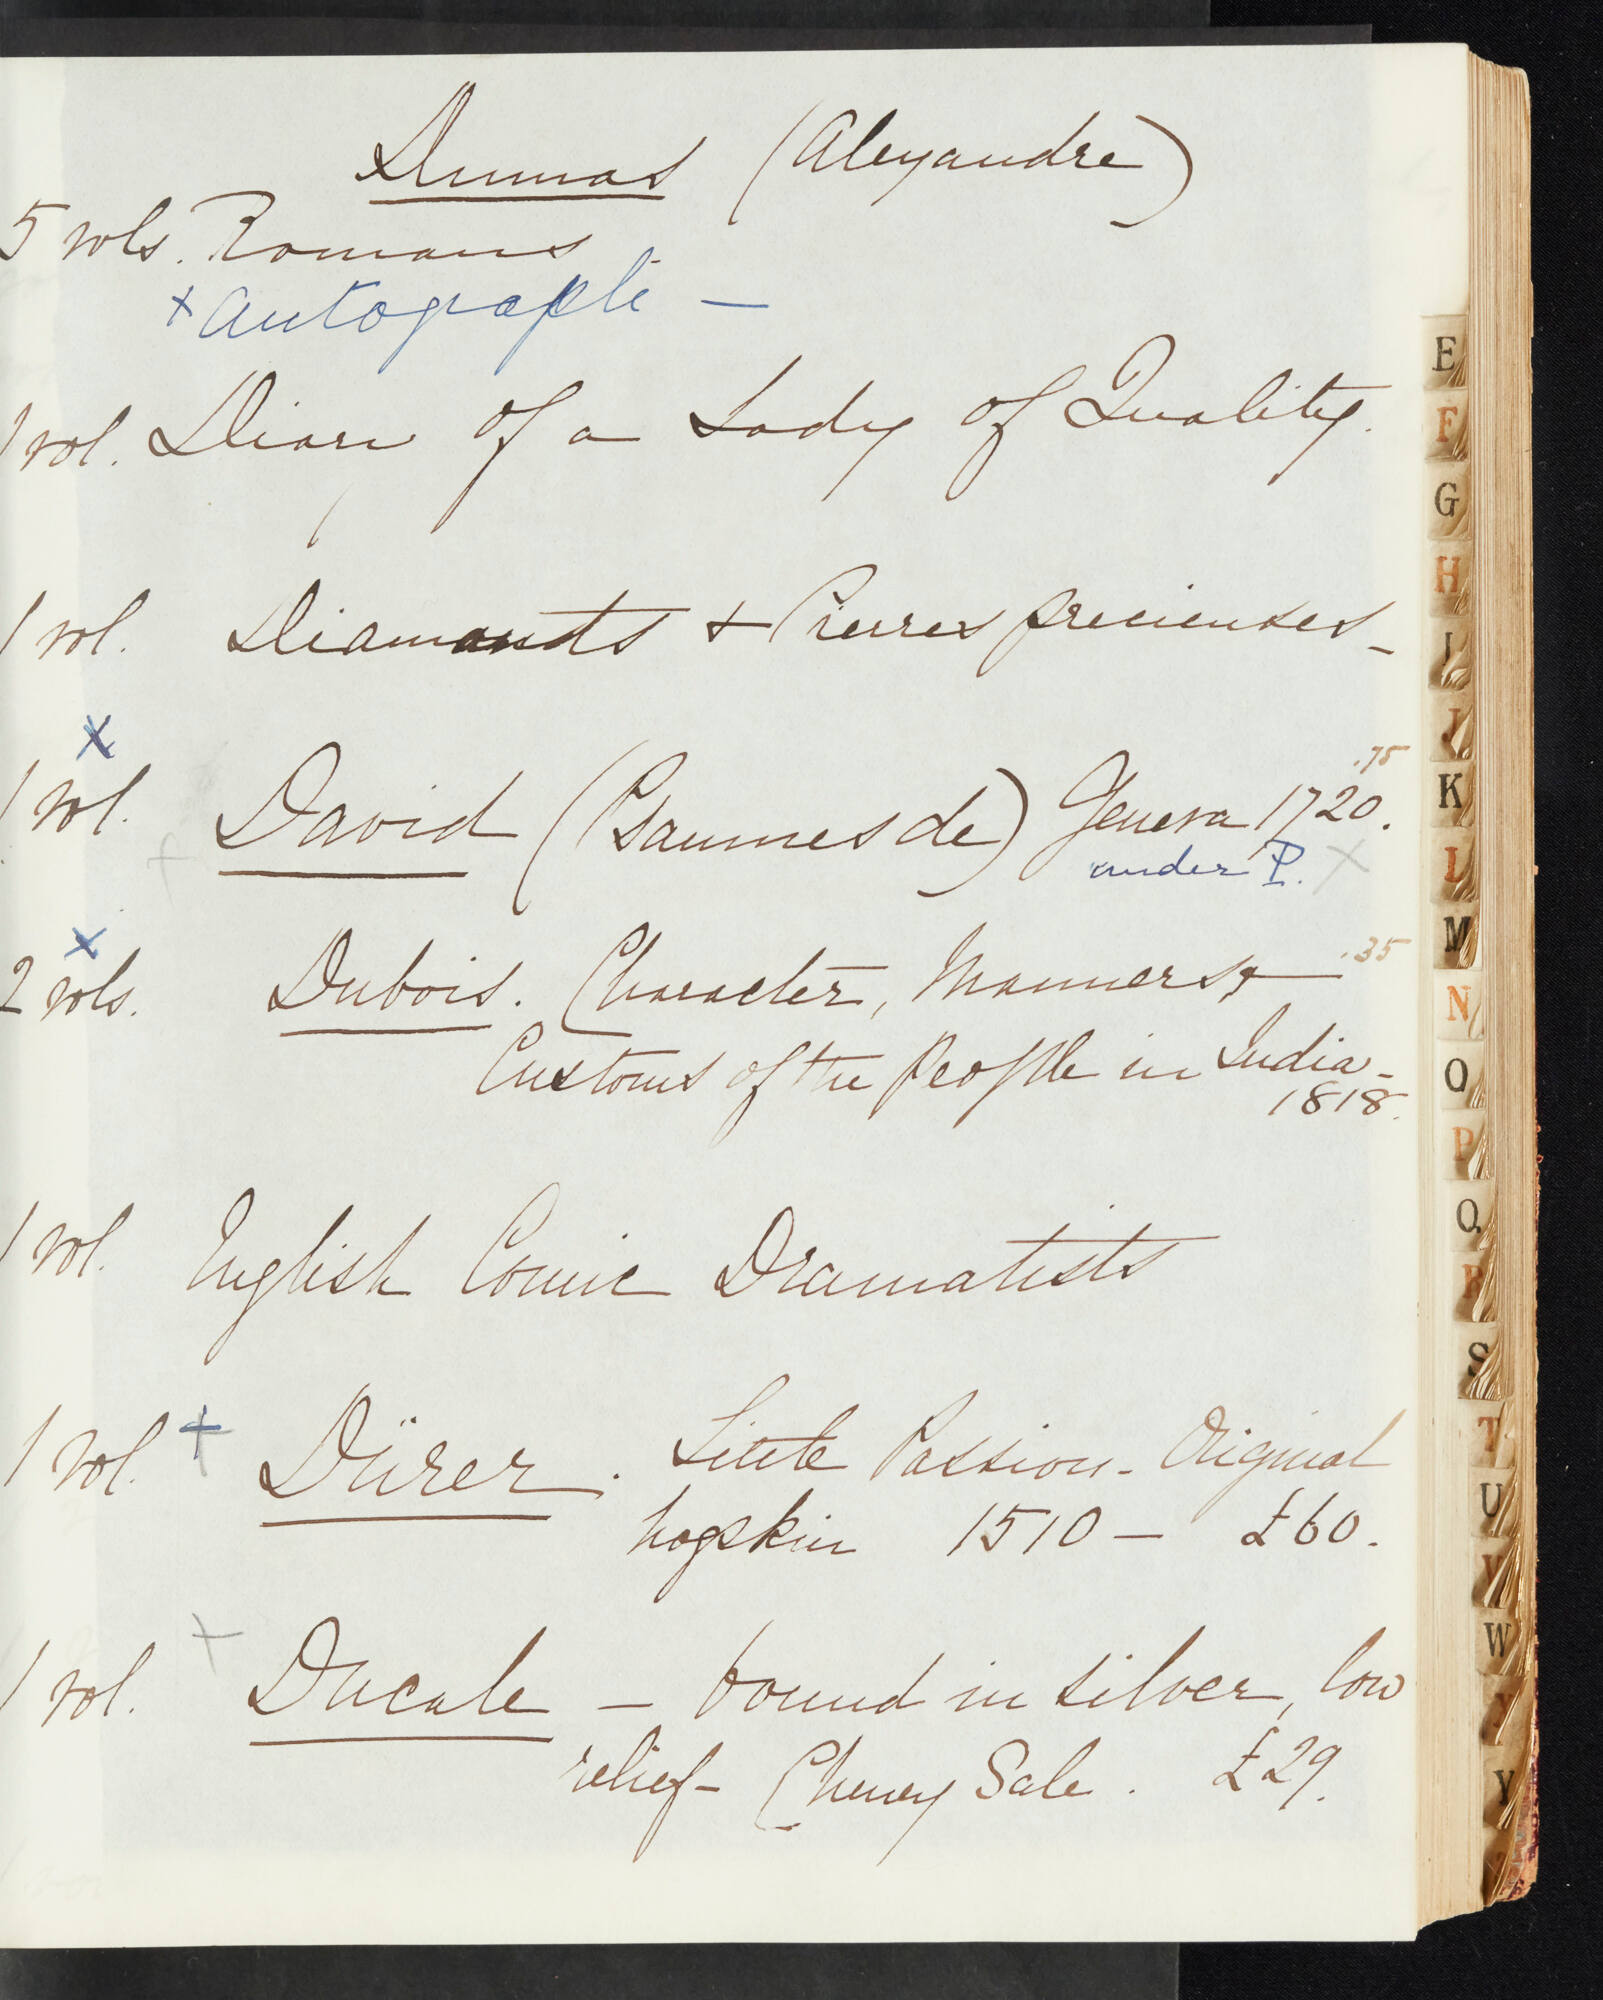 Dumas (Alexandre)
5 vols. Romans
+ Autograph —
1 vol. Diary of a Lady of Quality.
1 vol. Diamonds + Pierres precieuses -
x
.75
1 vol. David (Psaumes de) Geneva 1720.
under P. x
x
.35
2 vols. Dubois. Character, Manners &
Customs of the People in India -
1818.
1 vol. English Comic Dramatists
1 vol. + Dürer. Little Passion - Original
hogskin 1510 — £60.
+
1 vol. Ducale — bound in silver, low
relief - Cheney Sale. £29.
E
F
G
H
I
J
K
L
M
N
O
P
Q
R
S
T
U
V
W
X
Y